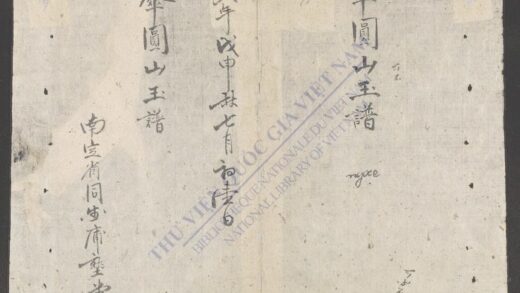 圓山玉譜
年戊申秋七月初陸日
傘圓山玉譜
南定省同
THƯ VIỆN QUỐC GIA VIỆT NAM
BIBLIOTHEQUE NATIONALE DU VIETNAM
NATIONAL LIBRARY OF VIETNAM